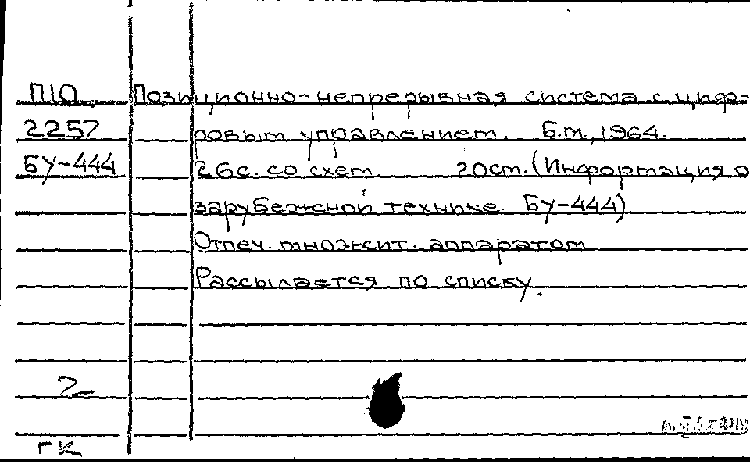 П10 Позиционно-непрерывная система с циф-
2257 ровым управлением. Б.м., 1964.
БУ-444 26с. со схем. 20см. (Информация о
зарубежной технике БУ-444)
Отпеч. множит. аппаратом
Рассылается по списку.
2-
ГК